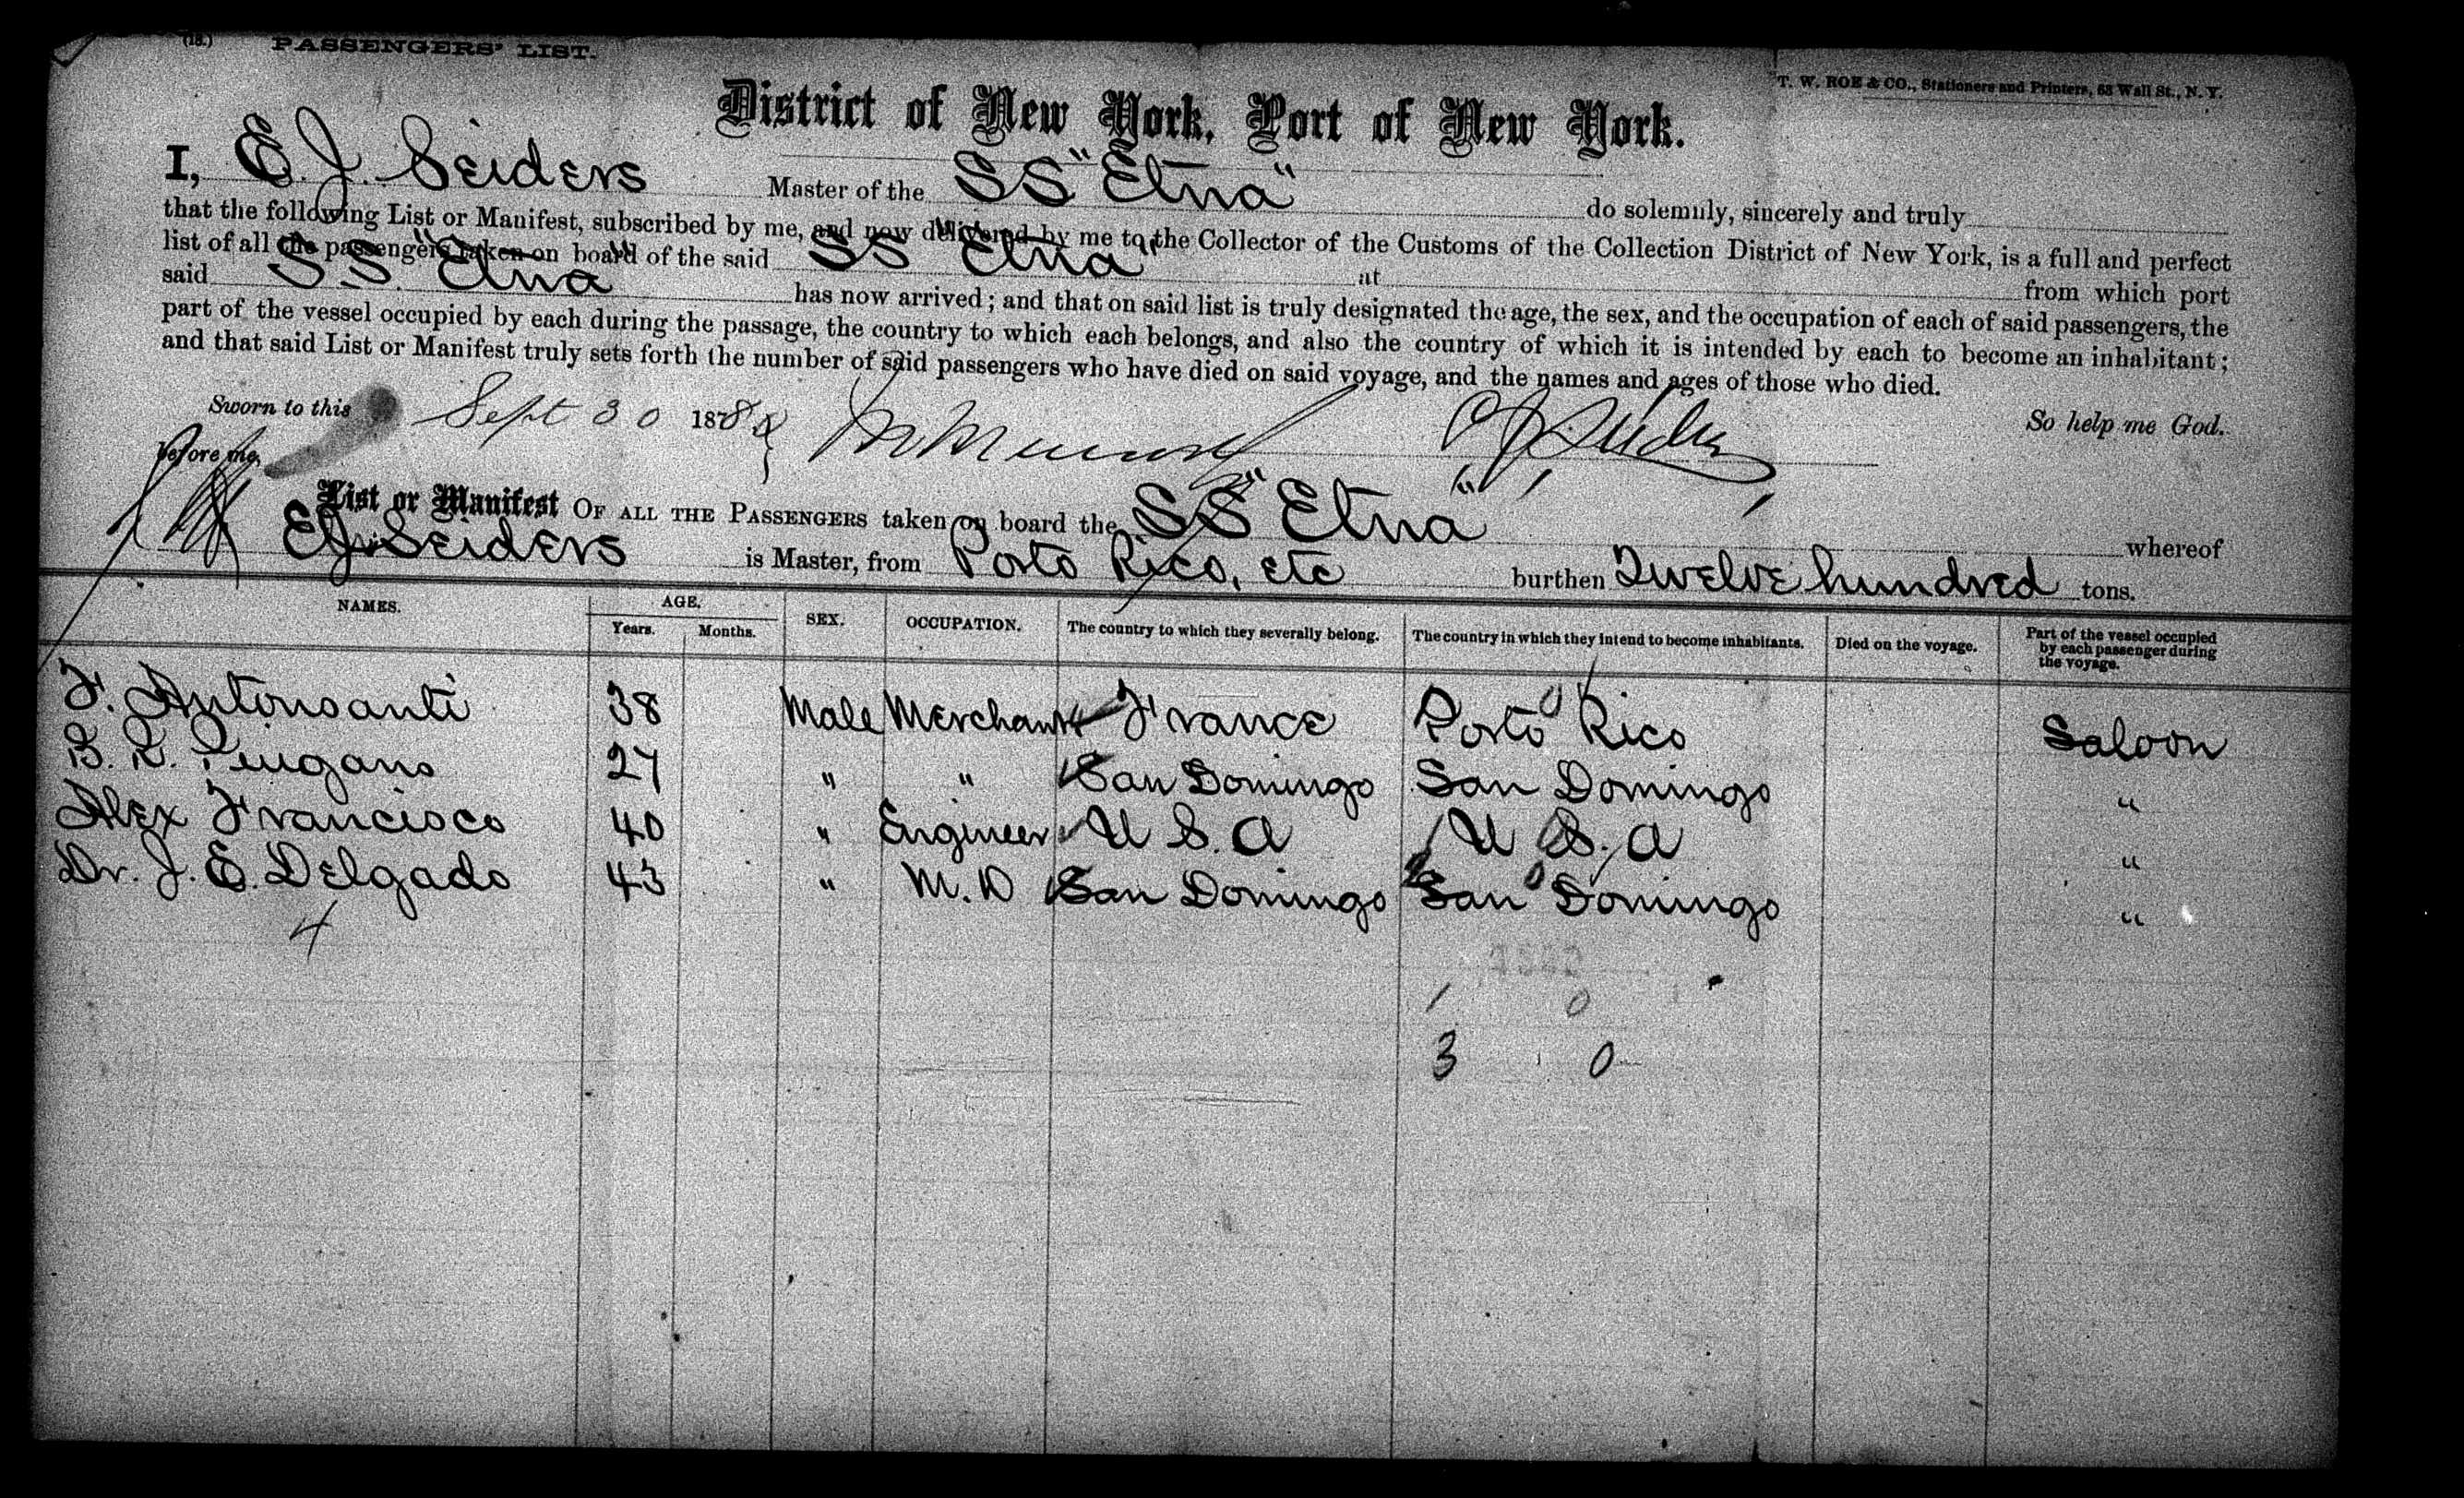 (18.) PASSENGERS' LIST.
T. W. ROE & CO., Stationers and Printers, 63 Wall St., N. Y.
District of New York, Port of New York.
I, E. J. Seiders Master of the SS "Etna" do solemnly, sincerely and truly
that the following List or Manifest, subscribed by me, and now delivered by me to the Collector of the Customs of the Collection District of New York, is a full and perfect
list of all the passengers taken on board of the said SS "Etna" at from which port
said SS. "Etna" has now arrived; and that on said list is truly designated the age, the sex, and the occupation of each of said passengers, the
part of the vessel occupied by each during the passage, the country to which each belongs, and also the country of which it is intended by each to become an inhabitant;
and that said List or Manifest truly sets forth the number of said passengers who have died on said voyage, and the names and ages of those who died.
Sworn to this Sept 30 1878 EJ Seiders So help me God.
before me,
List or Manifest OF ALL THE PASSENGERS taken on board the SS "Etna" whereof
EJ Seiders is Master, from Porto Rico, etc burthen Twelve hundred tons.
NAMES. AGE. Years. Months. SEX. OCCUPATION. The country to which they severally belong. The country in which they intend to become inhabitants. Died on the voyage. Part of the vessel occupied by each passenger during the voyage.
F. Antonsanti 38 Male Merchant France Porto Rico Saloon
B. R. 27 " " San Domingo San Domingo "
Alex Francisco 40 " Engineer U S. A U S. A "
Dr. J. E. Delgado 43 " M. D San Domingo San Domingo "
4
1 0
3 0